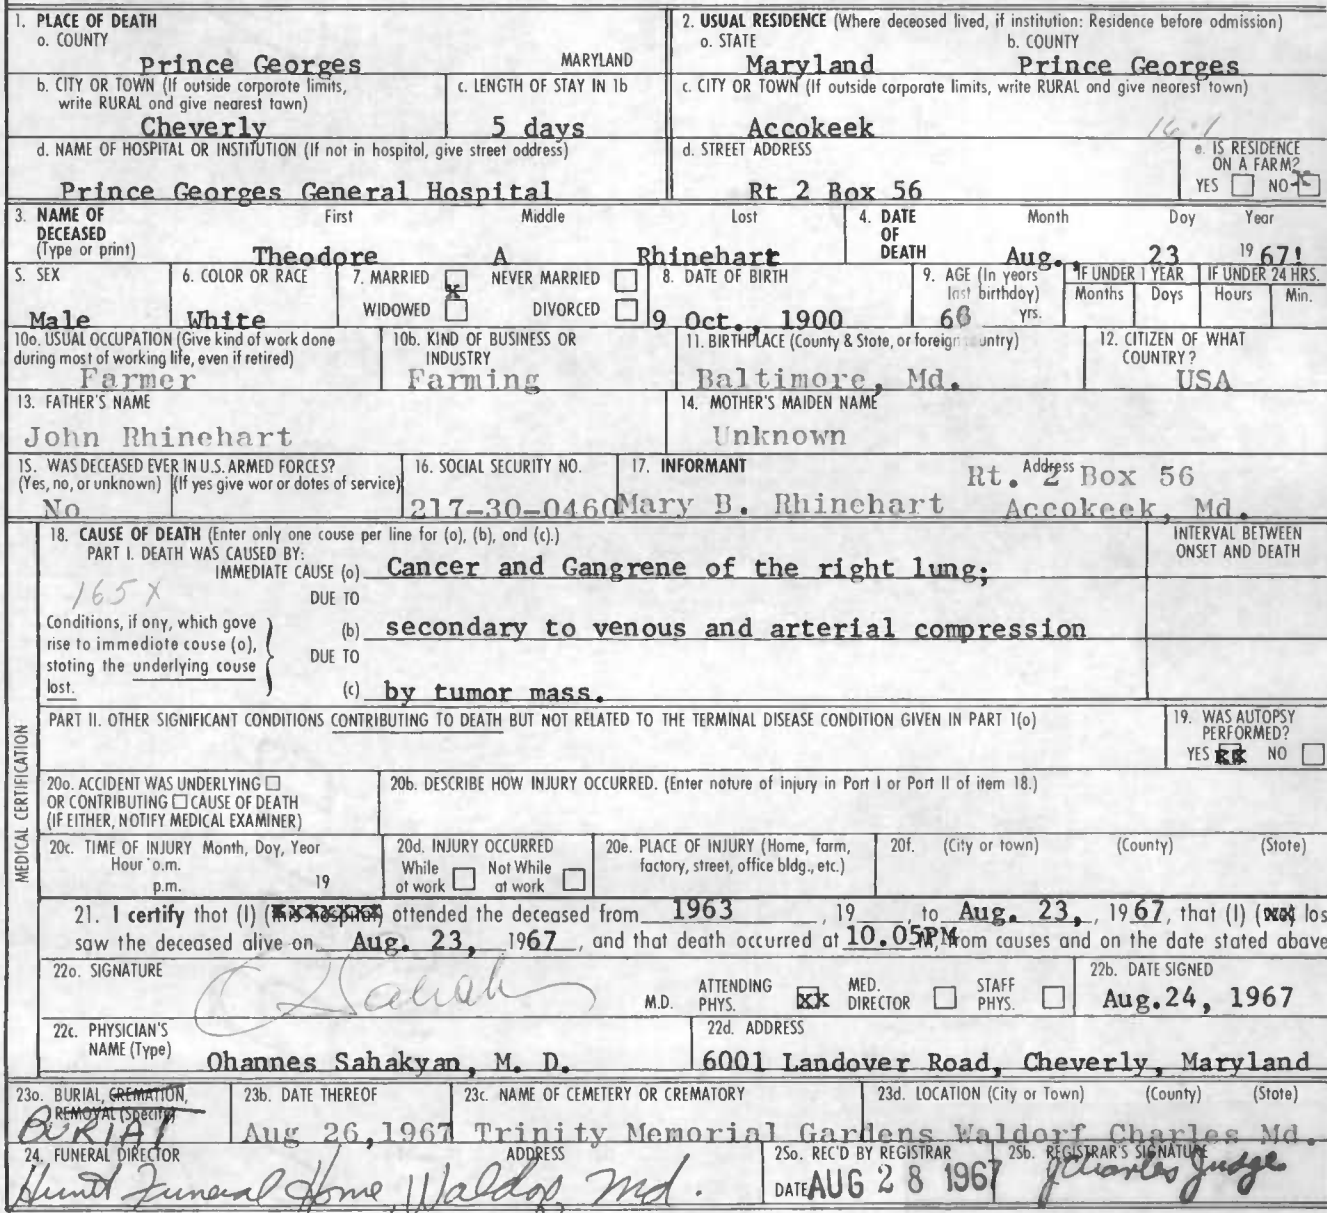 1. PLACE OF DEATH
a. COUNTY
Prince Georges MARYLAND
2. USUAL RESIDENCE (Where deceased lived, if institution: Residence before admission)
a. STATE b. COUNTY
Maryland Prince Georges
b. CITY OR TOWN (If outside corporate limits,
write RURAL and give nearest town)
Cheverly
c. LENGTH OF STAY IN 1b
5 days
c. CITY OR TOWN (If outside corporate limits, write RURAL and give nearest town)
Accokeek
16.1
d. NAME OF HOSPITAL OR INSTITUTION (If not in hospital, give street address)
Prince Georges General Hospital
d. STREET ADDRESS
Rt 2 Box 56
e. IS RESIDENCE
ON A FARM?
YES NO X
3. NAME OF
DECEASED
(Type or print)
First Middle Last
Theodore A Rhinehart
4. DATE
OF
DEATH
Month Day Year
Aug. 23 1967!
5. SEX
Male
6. COLOR OR RACE
White
7. MARRIED X NEVER MARRIED
WIDOWED DIVORCED
8. DATE OF BIRTH
9 Oct., 1900
9. AGE (In years
last birthday)
66 yrs.
IF UNDER 1 YEAR
Months Days
IF UNDER 24 HRS.
Hours Min.
10a. USUAL OCCUPATION (Give kind of work done
during most of working life, even if retired)
Farmer
10b. KIND OF BUSINESS OR
INDUSTRY
Farming
11. BIRTHPLACE (County & State, or foreign country)
Baltimore, Md.
12. CITIZEN OF WHAT
COUNTRY?
USA
13. FATHER'S NAME
John Rhinehart
14. MOTHER'S MAIDEN NAME
Unknown
15. WAS DECEASED EVER IN U.S. ARMED FORCES?
(Yes, no, or unknown) (If yes give war or dates of service)
No
16. SOCIAL SECURITY NO.
217-30-0460
17. INFORMANT
Mary B. Rhinehart
Address
Rt. 2 Box 56
Accokeek, Md.
MEDICAL CERTIFICATION
18. CAUSE OF DEATH (Enter only one cause per line for (a), (b), and (c).)
PART I. DEATH WAS CAUSED BY:
IMMEDIATE CAUSE (a) Cancer and Gangrene of the right lung;
INTERVAL BETWEEN
ONSET AND DEATH
165X
DUE TO
Conditions, if any, which gave
rise to immediate cause (a),
stating the underlying cause
last.
(b) secondary to venous and arterial compression
DUE TO
(c) by tumor mass.
PART II. OTHER SIGNIFICANT CONDITIONS CONTRIBUTING TO DEATH BUT NOT RELATED TO THE TERMINAL DISEASE CONDITION GIVEN IN PART 1(a)
19. WAS AUTOPSY
PERFORMED?
YES XX NO
20a. ACCIDENT WAS UNDERLYING
OR CONTRIBUTING CAUSE OF DEATH
(IF EITHER, NOTIFY MEDICAL EXAMINER)
20b. DESCRIBE HOW INJURY OCCURRED. (Enter nature of injury in Part I or Part II of item 18.)
20c. TIME OF INJURY Month, Day, Year
Hour a.m.
p.m. 19
20d. INJURY OCCURRED
While Not While
at work at work
20e. PLACE OF INJURY (Home, farm,
factory, street, office bldg., etc.)
20f. (City or town) (County) (State)
21. I certify that (I) (this hospital) attended the deceased from 1963, 19 , to Aug. 23, 1967, that (I) las
saw the deceased alive on Aug. 23, 1967, and that death occurred at 10.05PM, from causes and on the date stated above
22a. SIGNATURE
M.D.
ATTENDING
PHYS. XX
MED.
DIRECTOR
STAFF
PHYS.
22b. DATE SIGNED
Aug.24, 1967
22c. PHYSICIAN'S
NAME (Type)
Ohannes Sahakyan, M. D.
22d. ADDRESS
6001 Landover Road, Cheverly, Maryland
23a. BURIAL, CREMATION,
REMOVAL (Specify)
BURIAL
23b. DATE THEREOF
Aug 26,1967
23c. NAME OF CEMETERY OR CREMATORY
Trinity Memorial Gardens
23d. LOCATION (City or Town) (County) (State)
Waldorf Charles Md.
24. FUNERAL DIRECTOR ADDRESS
Hunt Funeral Home, Waldorf, Md.
25a. REC'D BY REGISTRAR
DATE AUG 28 1967
25b. REGISTRAR'S SIGNATURE
J Charles Judge